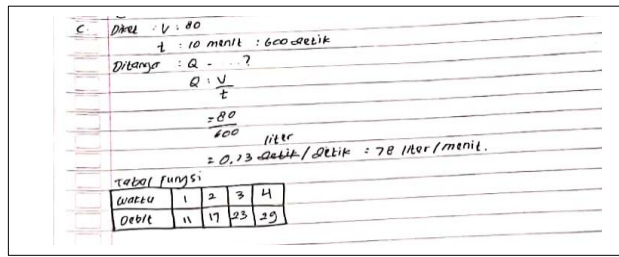 C. Diket : V : 80
t : 10 menit : 600 detik
Ditanya : Q - ...?
Q : V
t
= 80
600
liter
= 0,13 detik / detik : 78 liter/menit.
Tabel fungsi
Waktu 1 2 3 4
Debit 11 17 23 29